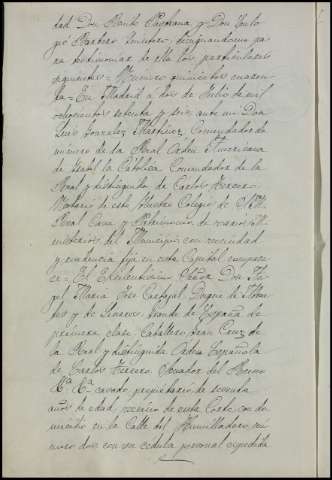 dad Don Benito Pastrana y Don Eulo
gio Barbero Quintero, designandome pa
ra testimoniar de ella los particulares
siguientes = Numero quinientos cuaren
ta = En Madrid a dos de Julio de mil
ochocientos setenta y seis ante mi Don
Luis Gonzalez Martinez, Comendador de
numero de la Real Orden Americana
de Isabel la Católica Comendador de la
Real y distinguida de Carlos Tercero
Notario de este Ilustre Colegio de
Real Casa y Patrimonio de varios Mi
nisterios del Municipio con vecindad
y residencia fija en esta Capital compare
ce = El Excelentísimo Señor Don An
gel Maria Jose Carbajal Duque de Abran
tes y de Linares Grande de España de
primera clase Caballero Gran Cruz de
la Real y distinguida Orden Española
de Carlos Tercero Senador del Reino
casado propietario de sesenta
años de edad, vecino de esta Corte con do
micilio en la Calle del Humilladero nú
mero dos con su cedula personal expedida